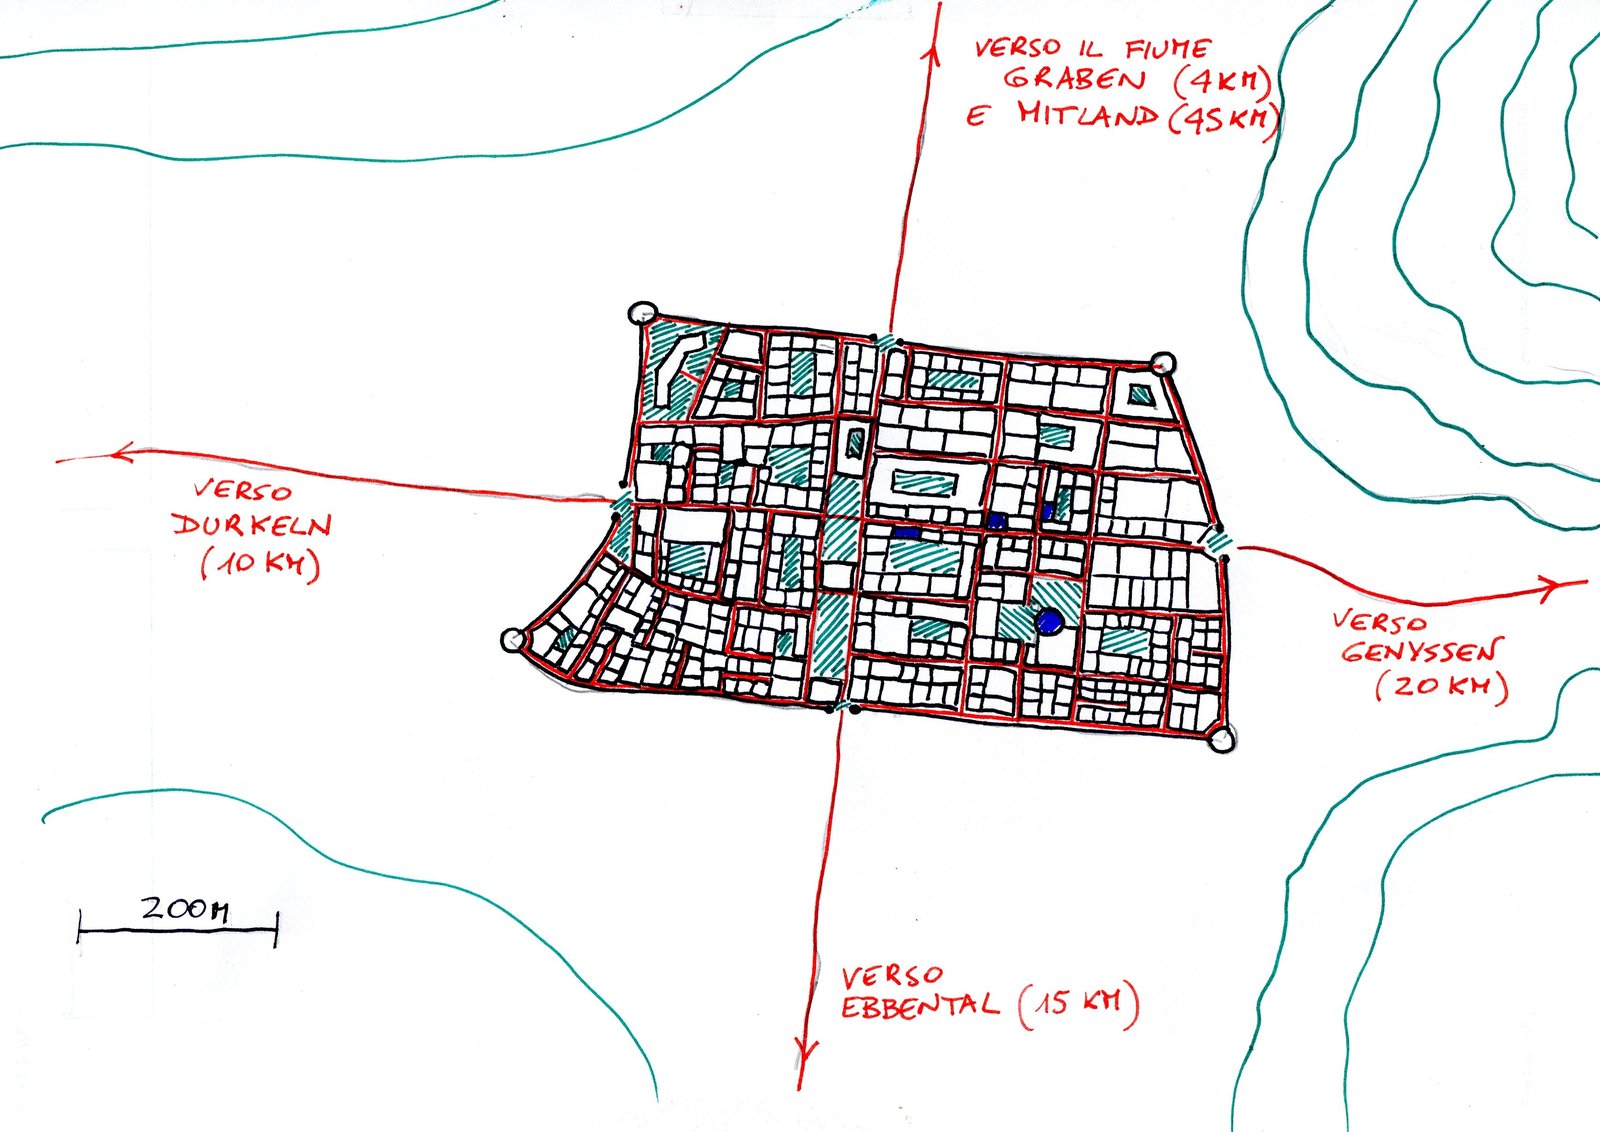 VERSO IL FIUME
GRABEN (4KM)
E MITLAND (45KM)
VERSO
DURKELN
(10 KM)
VERSO
GENYSSEN
(20 KM)
200M
VERSO
EBBENTAL (15 KM)